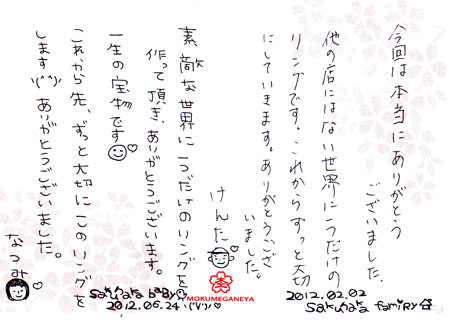 今回は本当にありがとう
ございました。
他の店にはない世界に一つだけの
リングです。これからずっと大切
にしていきます。ありがとうござ
いました。
けんた
素敵な世界に一つだけのリングを
作って頂き、ありがとうございます。
一生の宝物です
これから先、ずっと大切にこのリングを
します ヽ(^^)ノ ありがとうございました。
なつみ
MOKUMEGANEYA
2012.02.02
Sakurara famiry
Sakurara baby
2012.06.24 ヽ('V')ノ